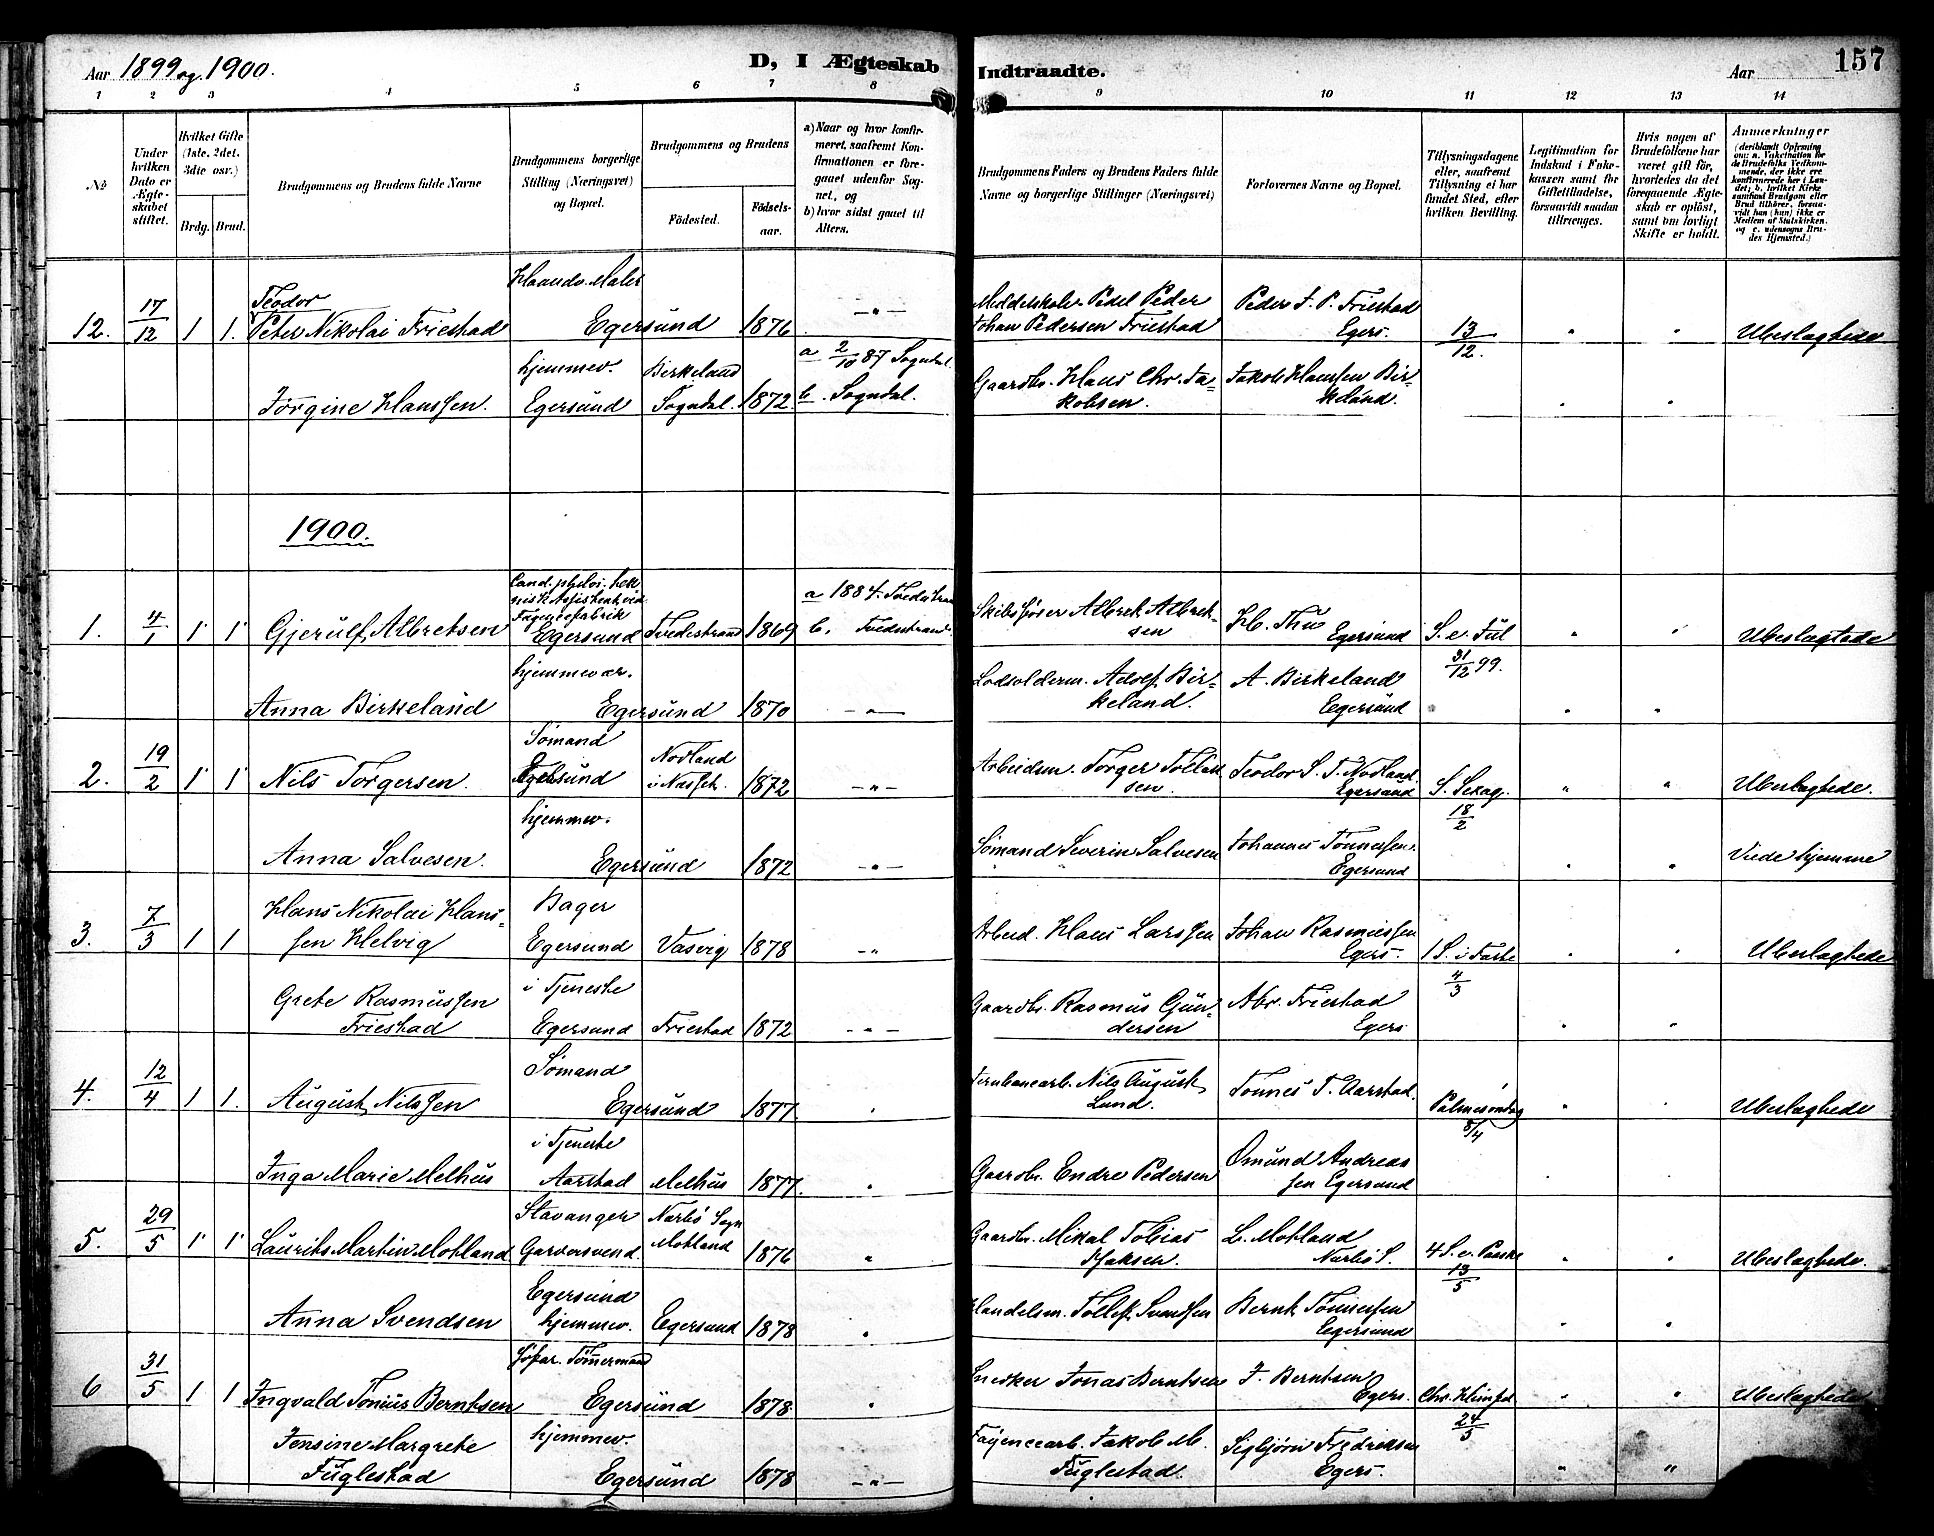 Aar 1899 og 1900.
D, I Ægteskab
Indtraadte.
Aar
157
1 2 3 4 5 6 7 8 9 10 11 12 13 14
No
Under hvilken Dato er Ægteskabet stiftet.
Hvilket Gifte (1ste, 2det, 3die osv.)
Brdg. Brud.
Brudgommens og Brudens fulde Navne
Brudgommens borgerlige Stilling (Næringsvei) og Bopæl.
Brudgommens og Brudens
Födested.
Födselsaar.
a) Naar og hvor konfirmeret, saafremt Konfirmationen er foregaaet udenfor Sognet, og
b) hvor sidst gaaet til Alters.
Brudgommens Faders og Brudens Faders fulde Navne og borgerlige Stillinger (Næringsvei)
Forlovernes Navne og Bopæl.
Tillysningsdagene eller, saafremt Tillysning ei har fundet Sted, efter hvilken Bevilling.
Legitimation for Indskud i Enkekassen samt for Giftetilladelse, forsaavidt saadan tiltrænges.
Hvis nogen af Brudefolkene har været gift før, hvorledes da det foregaaende Ægteskab er oplöst, samt om lovligt Skifte er holdt.
Anmerkninger (deriblandt Oplysning om: a. Vakcination for de Brudefolks Vedkommende, der ikke ere konfirmerede her i Landet; b. hvilket Kirkesamfund Brudgom eller Brud tilhører, forsaavidt han (hun) ikke er Medlem af Statskirken. og c. udensogns Brudes Hjemsted.)
12. 17/12 1 1. Teodor Peter Nikolai Friestad
Haandv. Maler
Egersund 1876 — " —
Middelskole-Pedel Peder Johan Pedersen Friestad
Peder J. P. Friestad Egers.
13/12. " " Ubeslægtede
Jörgine Hanssen.
hjemmev. Egersund
Birkeland Sogndal. 1872
a 2/10 87 Sogndal.
b. Sogndal.
Gaardbr. Hans Chr. Jakobsen.
Jakob Hanssen Birkeland.
1900.
1. 4/1 1 1 Gjerulf Albretsen
Cand. philos. teknisk Assistent ved Fayencefabrik
Egersund Tvedestrand 1869
a 1884. Tvedestrand
b. Tvedestrand.
Skibsfører Albret Albretsen
H. Thu Egersund
S. e. Jul 31/12 99.
" " Ubeslægtede
Anna Birkeland
hjemmevær.
Egersund 1870 — " —
Lodsolderm. Adolf Birkeland.
A. Birkeland Egersund
2. 19/2 1 1 Nils Torgersen.
Sömand
Egersund
Nodland i Næsset. 1872 — " —
Arbeidsm. Torger Tollaksen
Teodor S. T. Nodland. Egersund
S. Sexag. 18/2
" " Ubeslægtede.
Anna Salvesen.
hjemmev.
Egersund 1872 — " —
Sömand Severin Salvesen
Johannes Tönnessen. Egersund
Viede hjemme
3. 7/3 1 1 Hans Nikolai Hanssen Helvig
Bager
Egersund Vasvig 1878 — "
Arbeid. Hans Larssen
Johan Rasmussen Egers.
1 S. i Faste 4/3
" " Ubeslægtede
Grete Rasmussen Friestad
i Tjeneste
Egersund Friestad 1872 — " —
Gaardbr. Rasmus Gundersen
Abr. Friestad Egers
4. 12/4 1 1. August Nilssen
Sömand
Egersund 1877 "
Jernbanearb. Nils August Lund.
Tönnes T. Aarstad.
Palmesöndag 8/4
" " Ubeslægtede
Inga Marie Melhus
i Tjeneste
Aarstad Melhus 1877. "
Gaardbr. Endre Pedersen
Omund Andreassen Egersund
5. 29/5 1 1 Laurits Martin Motland
Stavanger
Garversvend
Nærbö Sogn Motland 1876 "
Gaardbr. Mikal Tobias Isaksen.
L. Motland Nærbö S.
4 S. e. Paaske 13/5
" " Ubeslægtede.
Anna Svendsen
Egersund
hjemmev. Egersund 1878 "
Handelsm. Tollef Svendsen
Bernt Tönnessen Egersund
6 31/5 1 1 Ingvald Tonius Berntsen
Söfar. Tömmermand
Egersund 1878 "
Snekker Jonas Berntsen
J. Berntsen Egers.
Chr. Himfed 24/5
" " Ubeslægtede
Jensine Margrete Fuglestad
hjemmev.
Egersund 1878 — " —
Fayencearb. Jakob M. Fuglestad.
Sigbjörn Fredriksen Egers.
" "